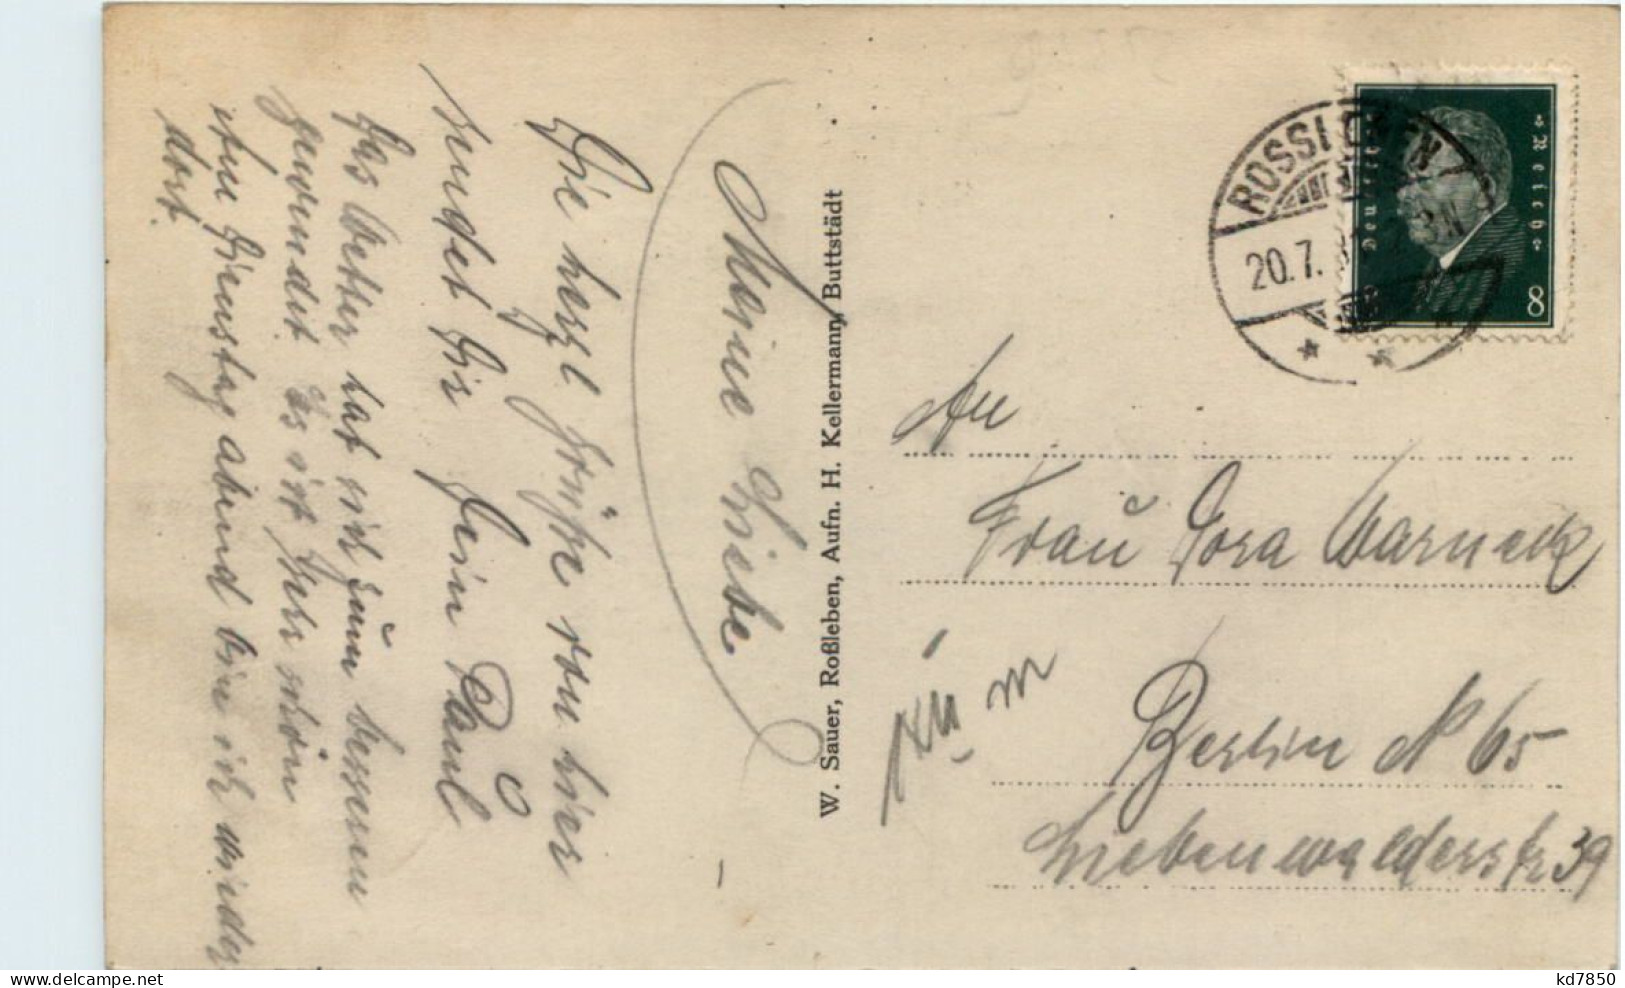 Meine Liebe
Die herzl Grüße von hier
sendet Dir Dein Paul
Das Wetter hat sich zum besseren
gewendet Es ist sehr schön
Am Dienstag abend bin ich wieder
dort.
W. Sauer, Roßleben, Aufn. H. Kellermann, Buttstädt
ROSSLEBEN
20.7.
Deutsches Reich
8
An
Frau Dora Warneck
Berlin N 65
Liebenwalderstr 39
kd7850